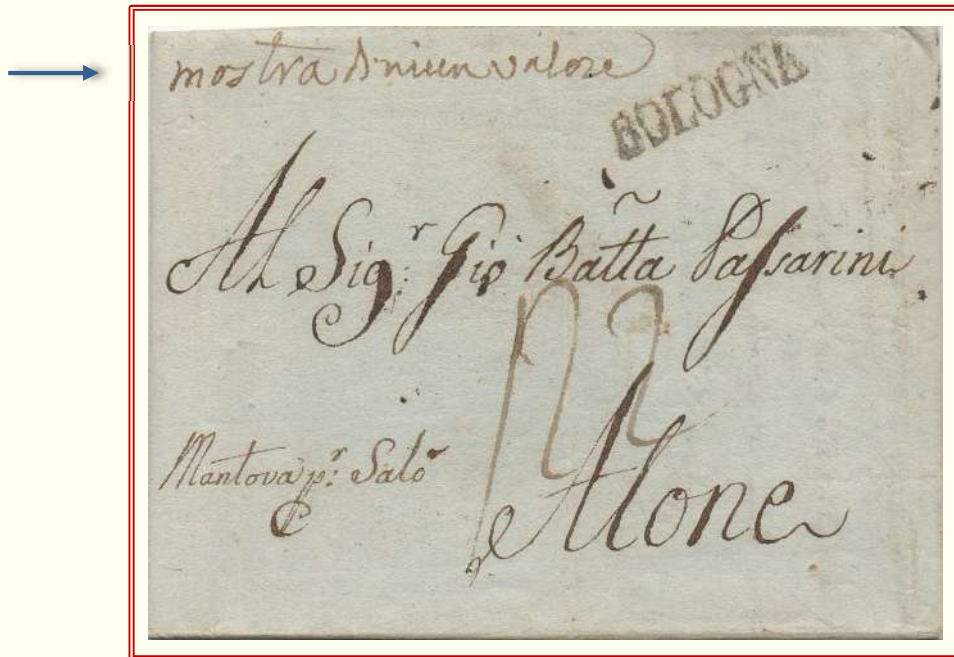 mostra di niun valore
BOLOGNA
Al Sig.r Giò Batta Passarini
Mantova p.r Salò
Alone